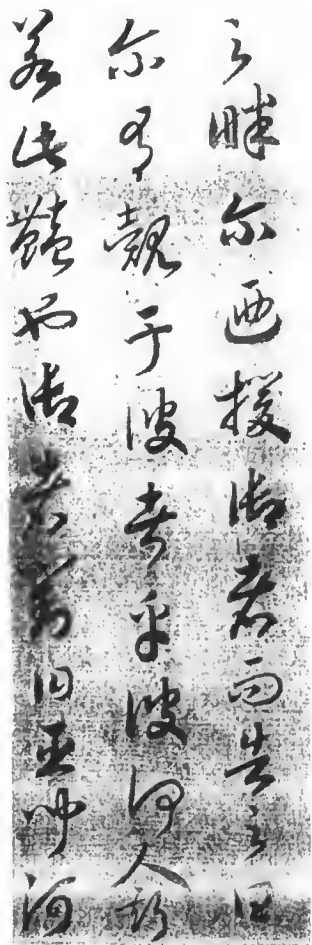 之畔尔迺援御者而告之曰
尔有觌于彼者乎彼何人斯
若此艳也御者对曰臣闻河